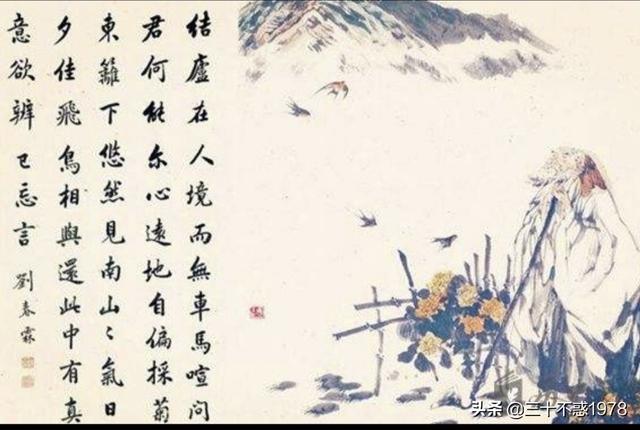 結廬在人境而無車馬喧問
君何能尔心遠地自偏採菊
東籬下悠然見南山〻氣日
夕佳飛鳥相與還此中有真
意欲辨已忘言
劉春霖
头条 @三十不惑1978